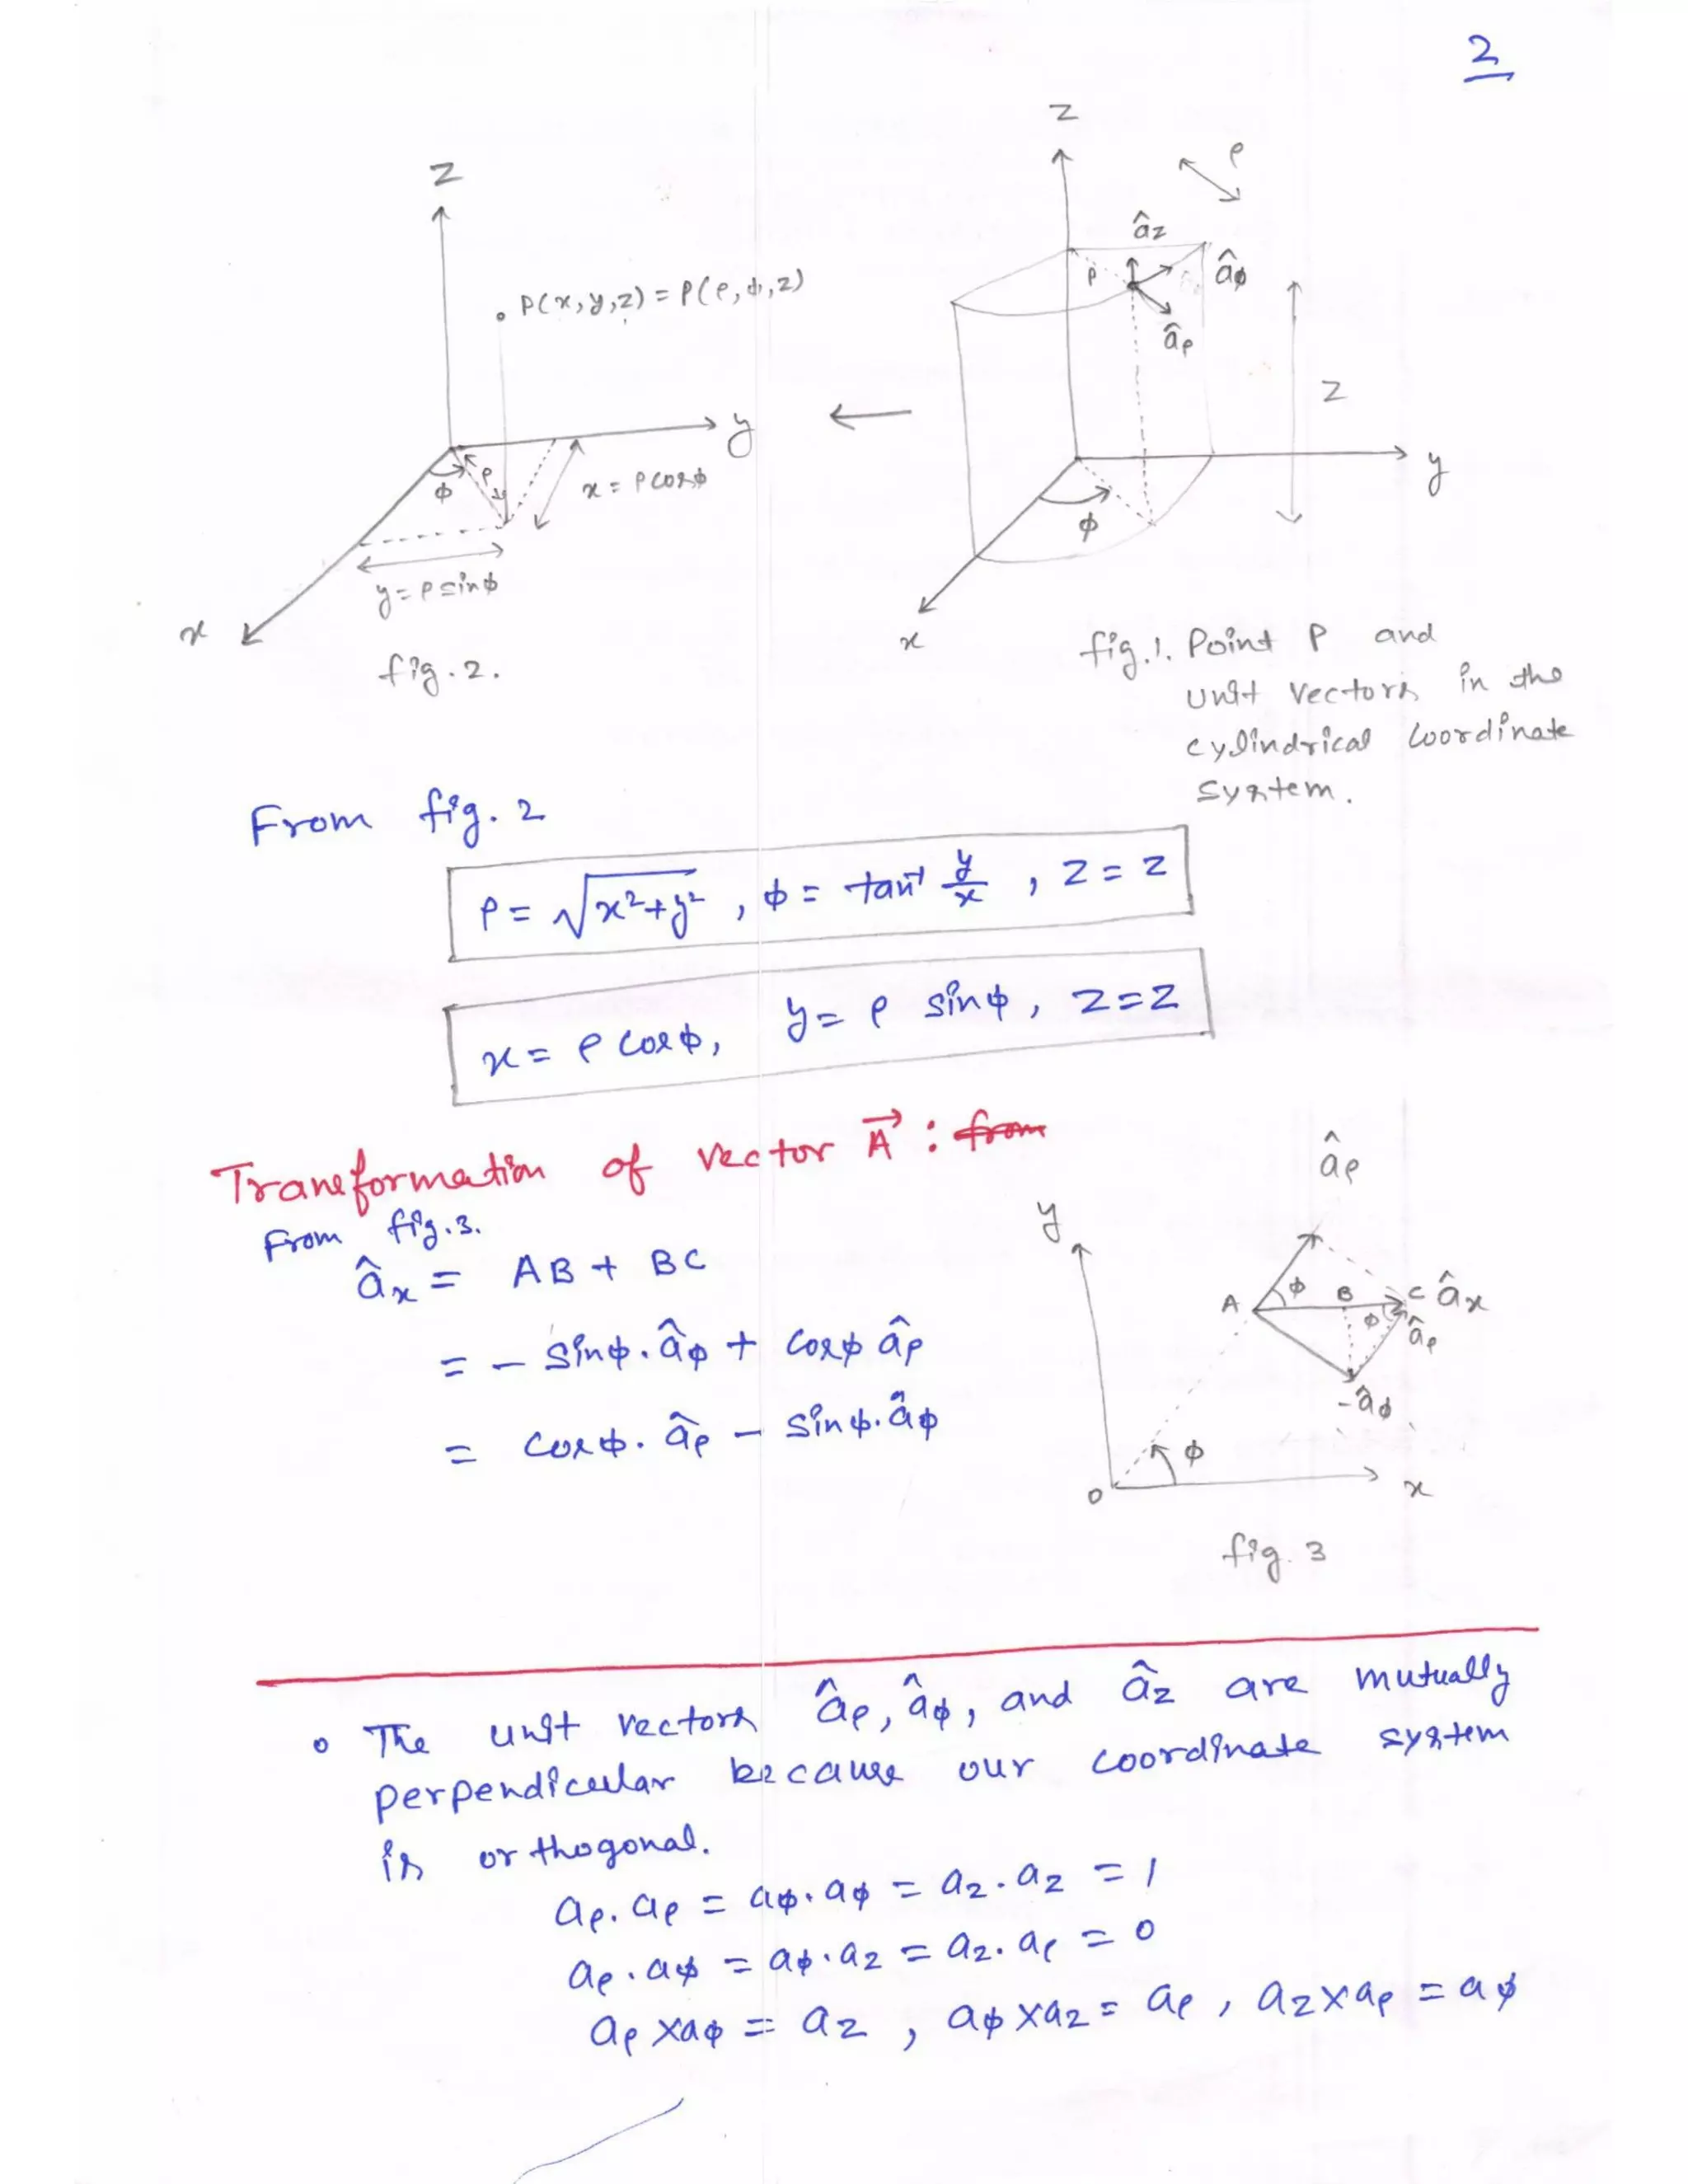 2
z
P(x,y,z) = P(ρ,ϕ,z)
y
ϕ
ρ
x = ρ cosϕ
y = ρ sinϕ
x
fig.2.
z
ρ
âz
ρ
âϕ
âρ
z
y
ϕ
x
fig.1. Point P and
unit vectors in the
cylindrical coordinate
system.
From fig. 2
ρ = √x²+y² , ϕ = tan⁻¹ y/x , z = z
x = ρ cosϕ, y = ρ sinϕ, z = z
Transformation of vector A⃗ : from
From fig.3.
âx = AB + BC
= - sinϕ.âϕ + cosϕ âρ
= cosϕ. âρ - sinϕ.âϕ
âρ
y
A
ϕ
B
C âx
ϕ
âρ
-âϕ
ϕ
O
x
fig. 3
o The unit vectors âρ, âϕ, and âz are mutually
perpendicular because our coordinate system
is orthogonal.
aρ.aρ = aϕ.aϕ = az.az = 1
aρ.aϕ = aϕ.az = az.aρ = 0
aρ×aϕ = az , aϕ×az = aρ , az×aρ = aϕ